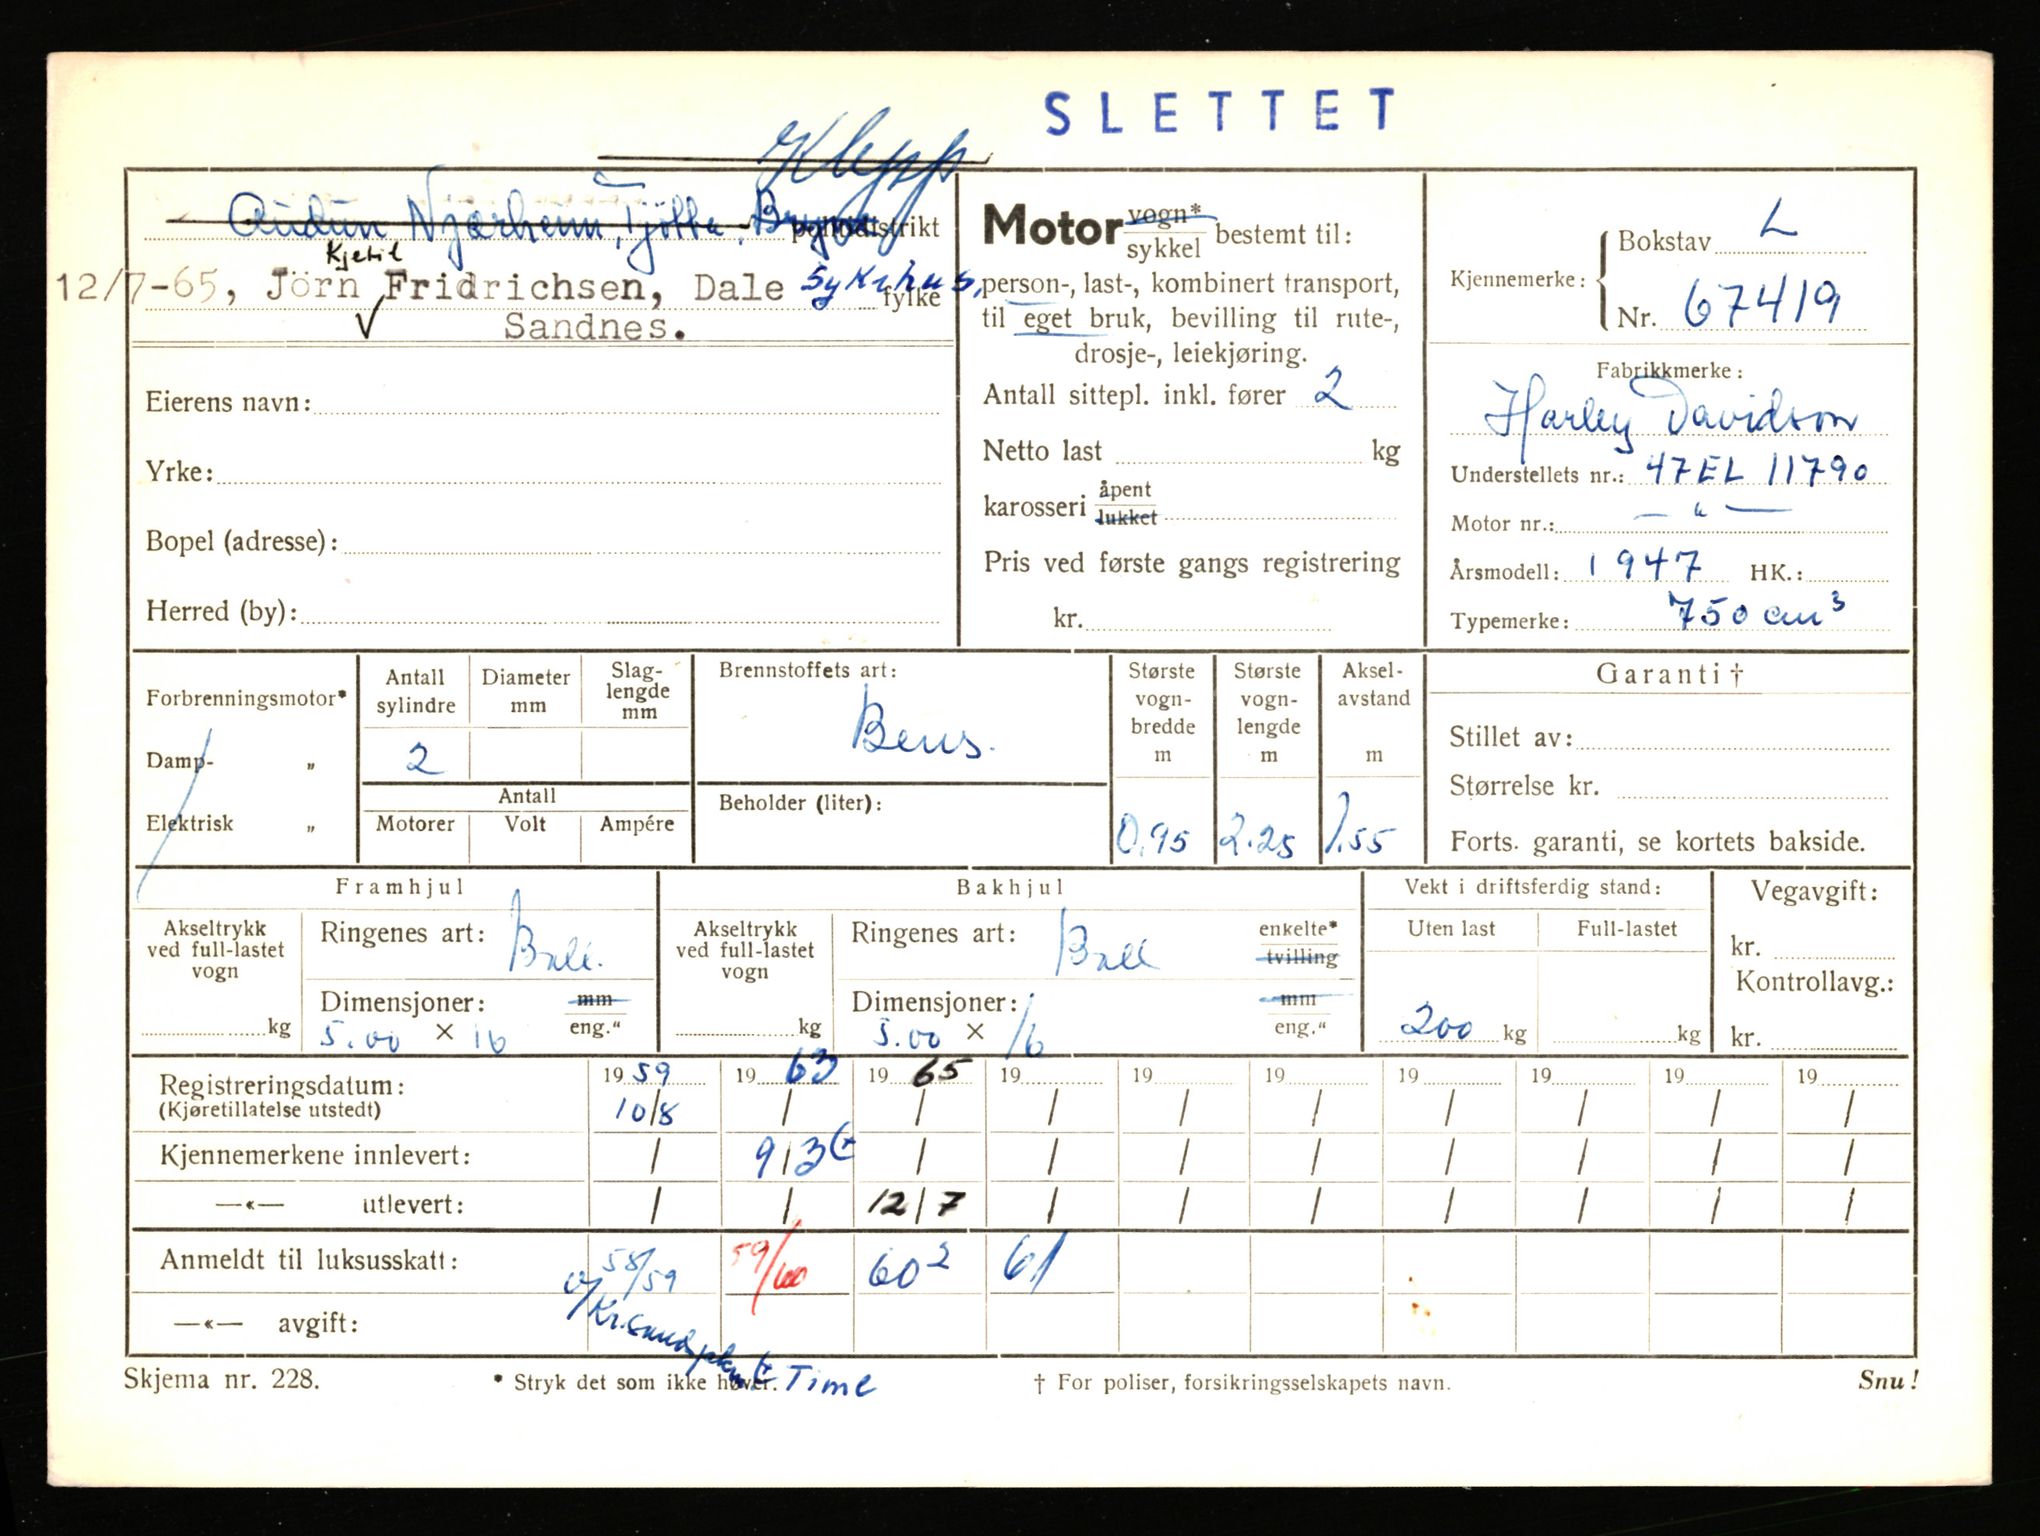 SLETTET
Klepp
Audun Njærheim, Tjøtta, Bryne politidistrikt
Kjetil
12/7-65, Jörn Fridrichsen, Dale Sykehus, fylke
Sandnes.
Eierens navn:
Yrke:
Bopel (adresse):
Herred (by):
Motor vogn* sykkel bestemt til:
person-, last-, kombinert transport,
til eget bruk, bevilling til rute-,
drosje-, leiekjøring.
Antall sittepl. inkl. fører 2
Netto last kg
karosseri åpent lukket
Pris ved første gangs registrering
kr.
Kjennemerke: { Bokstav L
Nr. 67419
Fabrikkmerke:
Harley Davidson
Understellets nr.: 47EL 11790
Motor nr.: — " —
Årsmodell: 1947 HK.:
Typemerke: 750 cm³
Forbrenningsmotor*
Damp- „
Elektrisk „
Antall sylindre
Diameter mm
Slag-lengde mm
2
Antall
Motorer Volt Ampére
Brennstoffets art:
Bens.
Beholder (liter):
Største vogn-bredde m
0.95
Største vogn-lengde m
2.25
Aksel-avstand m
1.55
Garanti †
Stillet av:
Størrelse kr.
Forts. garanti, se kortets bakside.
Framhjul
Akseltrykk ved full-lastet vogn
kg
Ringenes art: Ball.
Dimensjoner: mm
5.00 × 16 eng."
Bakhjul
Akseltrykk ved full-lastet vogn
kg
Ringenes art: Ball enkelte* tvilling
Dimensjoner: mm
5.00 × 16 eng."
Vekt i driftsferdig stand:
Uten last Full-lastet
200 kg kg
Vegavgift:
kr.
Kontrollavg.:
kr.
Registreringsdatum: 1959 1963 1965 19 19 19 19 19 19 19
(Kjøretillatelse utstedt) 10/8 / / / / / / / / /
Kjennemerkene innlevert: / 9/3 / / / / / / / /
—«— utlevert: / / 12/7 / / / / / / /
Anmeldt til luksusskatt: 58/59 59/60 60² 61
—«— avgift:
Time
Skjema nr. 228. * Stryk det som ikke høver. † For poliser, forsikringsselskapets navn. Snu!